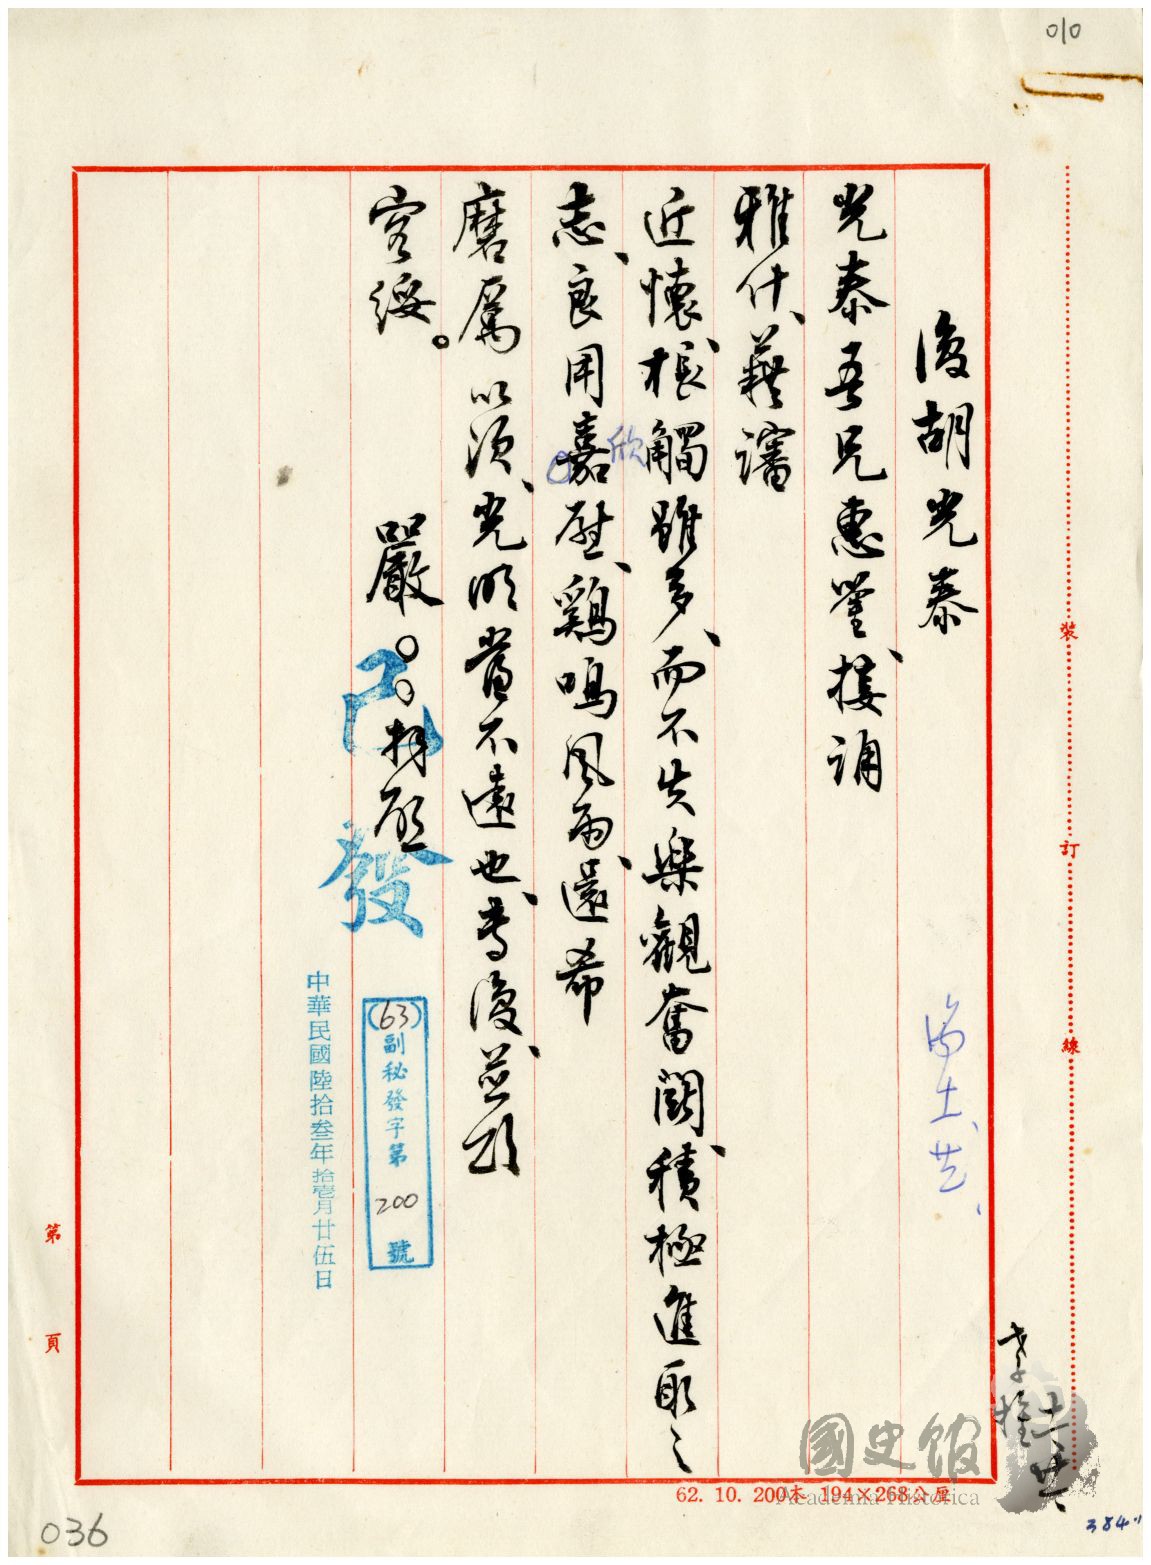 010
復胡光泰
光泰吾兄惠鑒、接誦
雅什、藉讅
近懷、棖觸雖多、而不失樂觀奮鬥、積極進取之
志、良用嘉慰、鷄鳴風雨、還希
欣
磨厲以須、光明當不遠也、專復、並頌
客綏。
嚴〇〇拜啟
已發
中華民國陸拾叁年拾壹月廿伍日
(63)副秘發字第200號
裝
訂
線
第
頁
62. 10. 200本 194×268公厘
國史館
Academia Historica
036
384